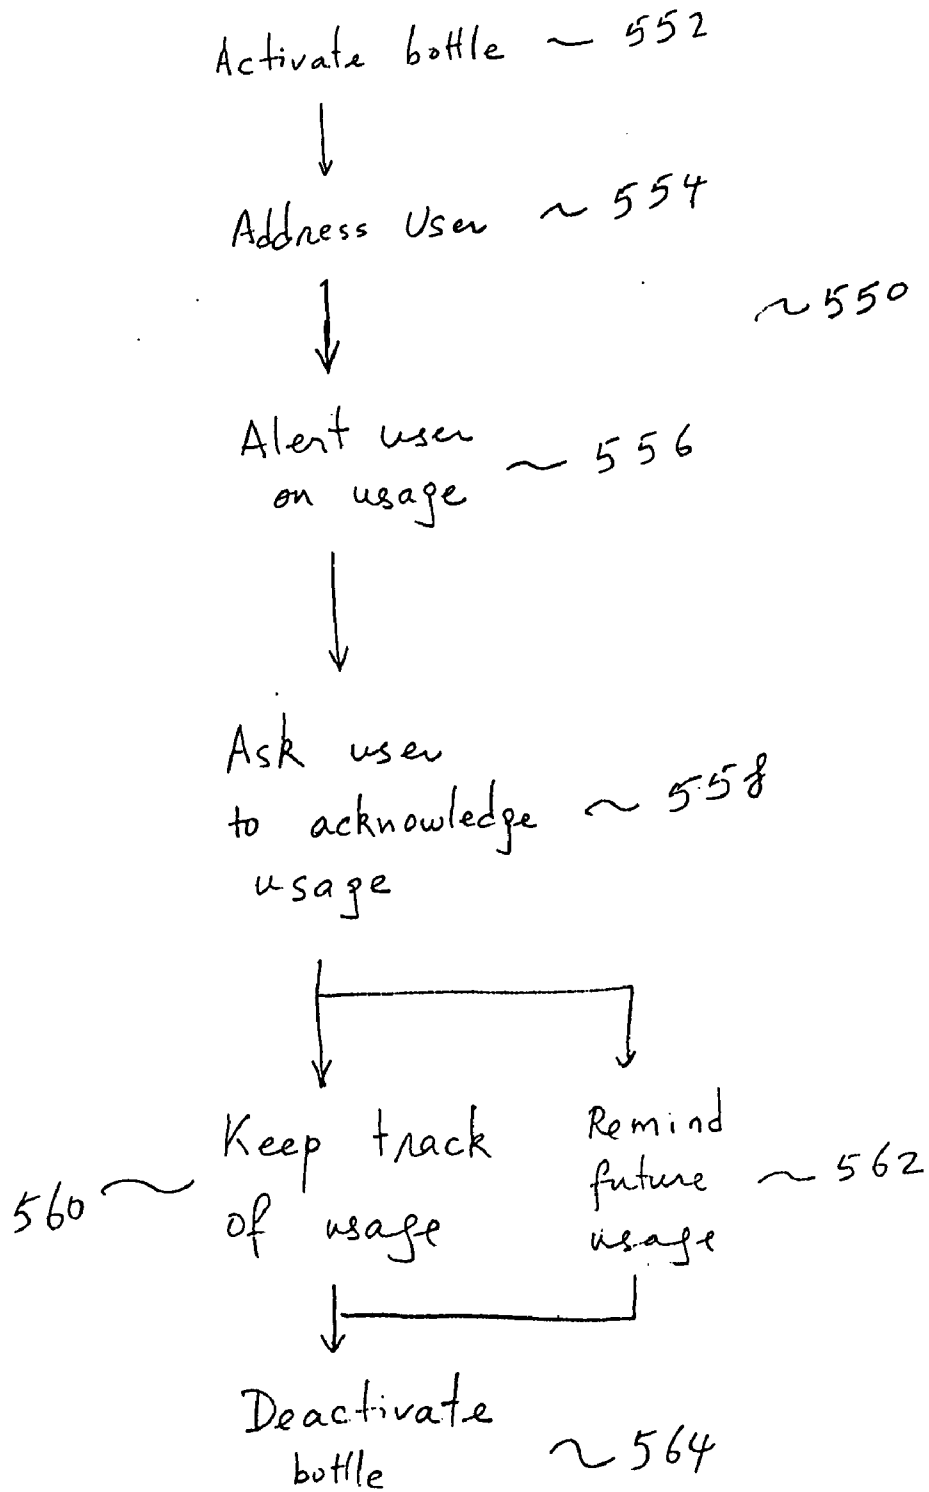 Activate bottle ~ 552
Address User ~ 554
~ 550
Alert user
on usage ~ 556
Ask user
to acknowledge ~ 558
usage
Keep track
of usage
560 ~
Remind
future ~ 562
usage
Deactivate
bottle ~ 564